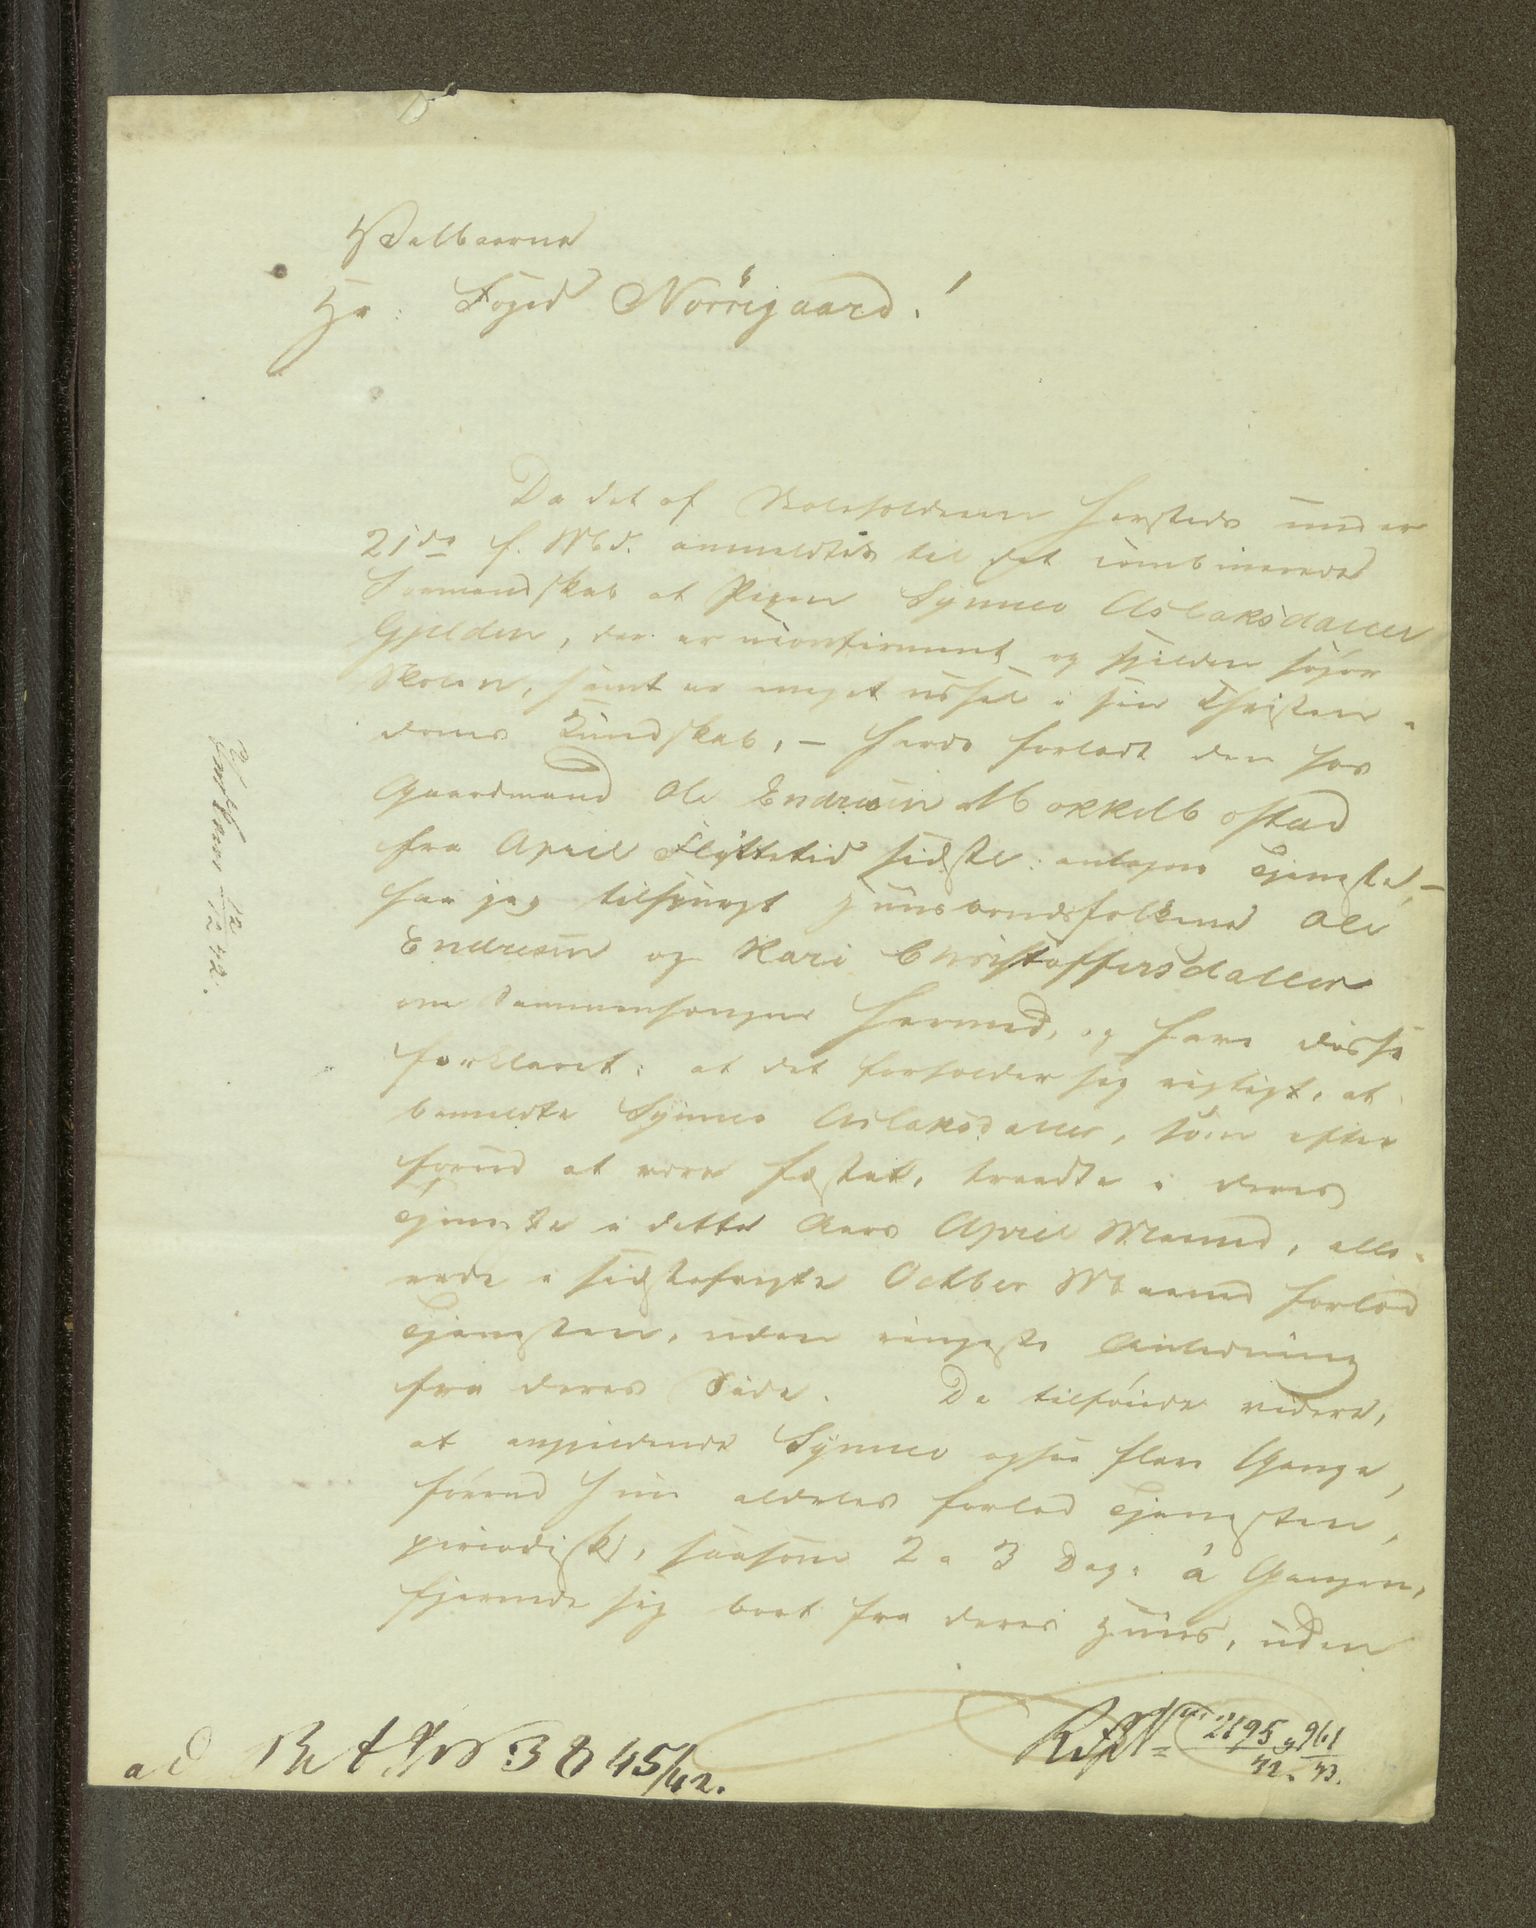 Velbaarne
Hr: Foged Nörregaard!
Da det af Skoleholderen hersteds under
21de f. Md. anmeldtes til det combinerede
Formandskab at Pigen Synnev Aslaksdatter
Gjelden, der er uconfirmeret og sjelden søger
Skolen, samt er meget ussel i sin Christen-
doms Kundskab, – havde forladt den hos
Gaardmand Ole Endresen Mokkelbostad
fra April Flyttetid sidstl: antagne Tjeneste, –
har jeg tilspurgt Huusbondsfolkene Ole
Endresen og Kari Christoffersdatter
om Sammenhængen hermed, og have disse
forklaret: at det forholder sig rigtigt, at
bemeldte Synnev Aslaksdatter, som efter
forud at være fæstet, traadte i deres
Tjeneste i dette Aars April Maaned, alle-
rede i sidstafvigte Octber Maaned forlod
Tjenesten, uden ringeste Anledning
fra deres Side. De tilføiede videre,
at angjeldende Synnev ogsaa flere Gange,
førend hun aldeles forlod Tjenesten,
periodisk, saasom 2 a 3 Dage á Gangen,
fjernede sig bort fra deres Huus, uden
12/12 42.
ad Ret. No 3845/42.
2195/42. 961/43.